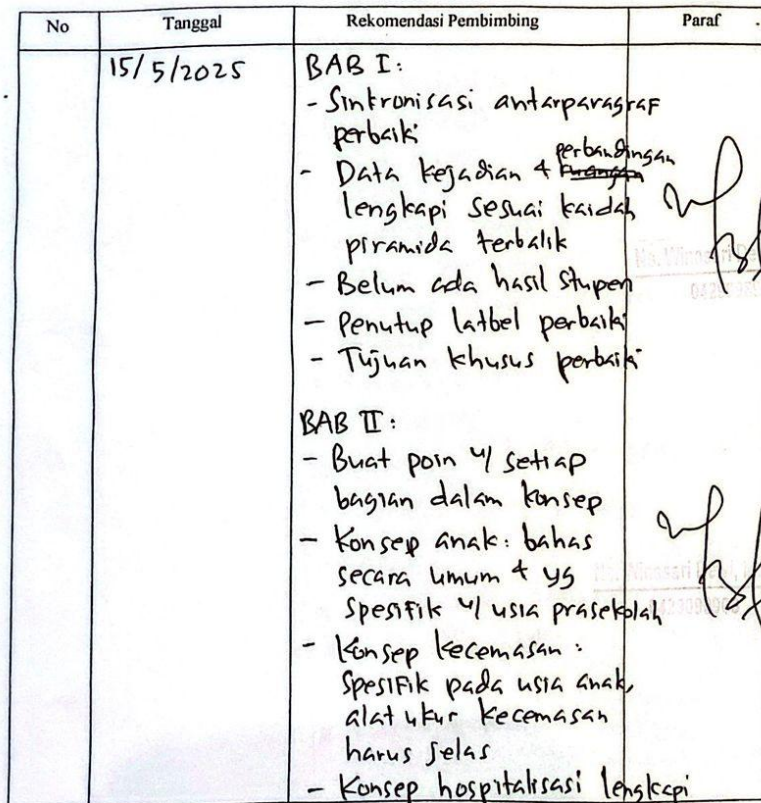 No Tanggal Rekomendasi Pembimbing Paraf
15/5/2025 BAB I:
- Sinkronisasi antarparagraf
perbaiki
- Data kejadian + perbandingan
lengkapi sesuai kaidah
piramida terbalik
- Belum ada hasil stupen
- Penutup latbel perbaiki
- Tujuan khusus perbaiki
BAB II:
- Buat poin u/ setiap
bagian dalam konsep
- Konsep anak: bahas
secara umum + yg
spesifik u/ usia prasekolah
- Konsep kecemasan:
spesifik pada usia anak,
alat ukur kecemasan
harus jelas
- Konsep hospitalisasi lengkapi